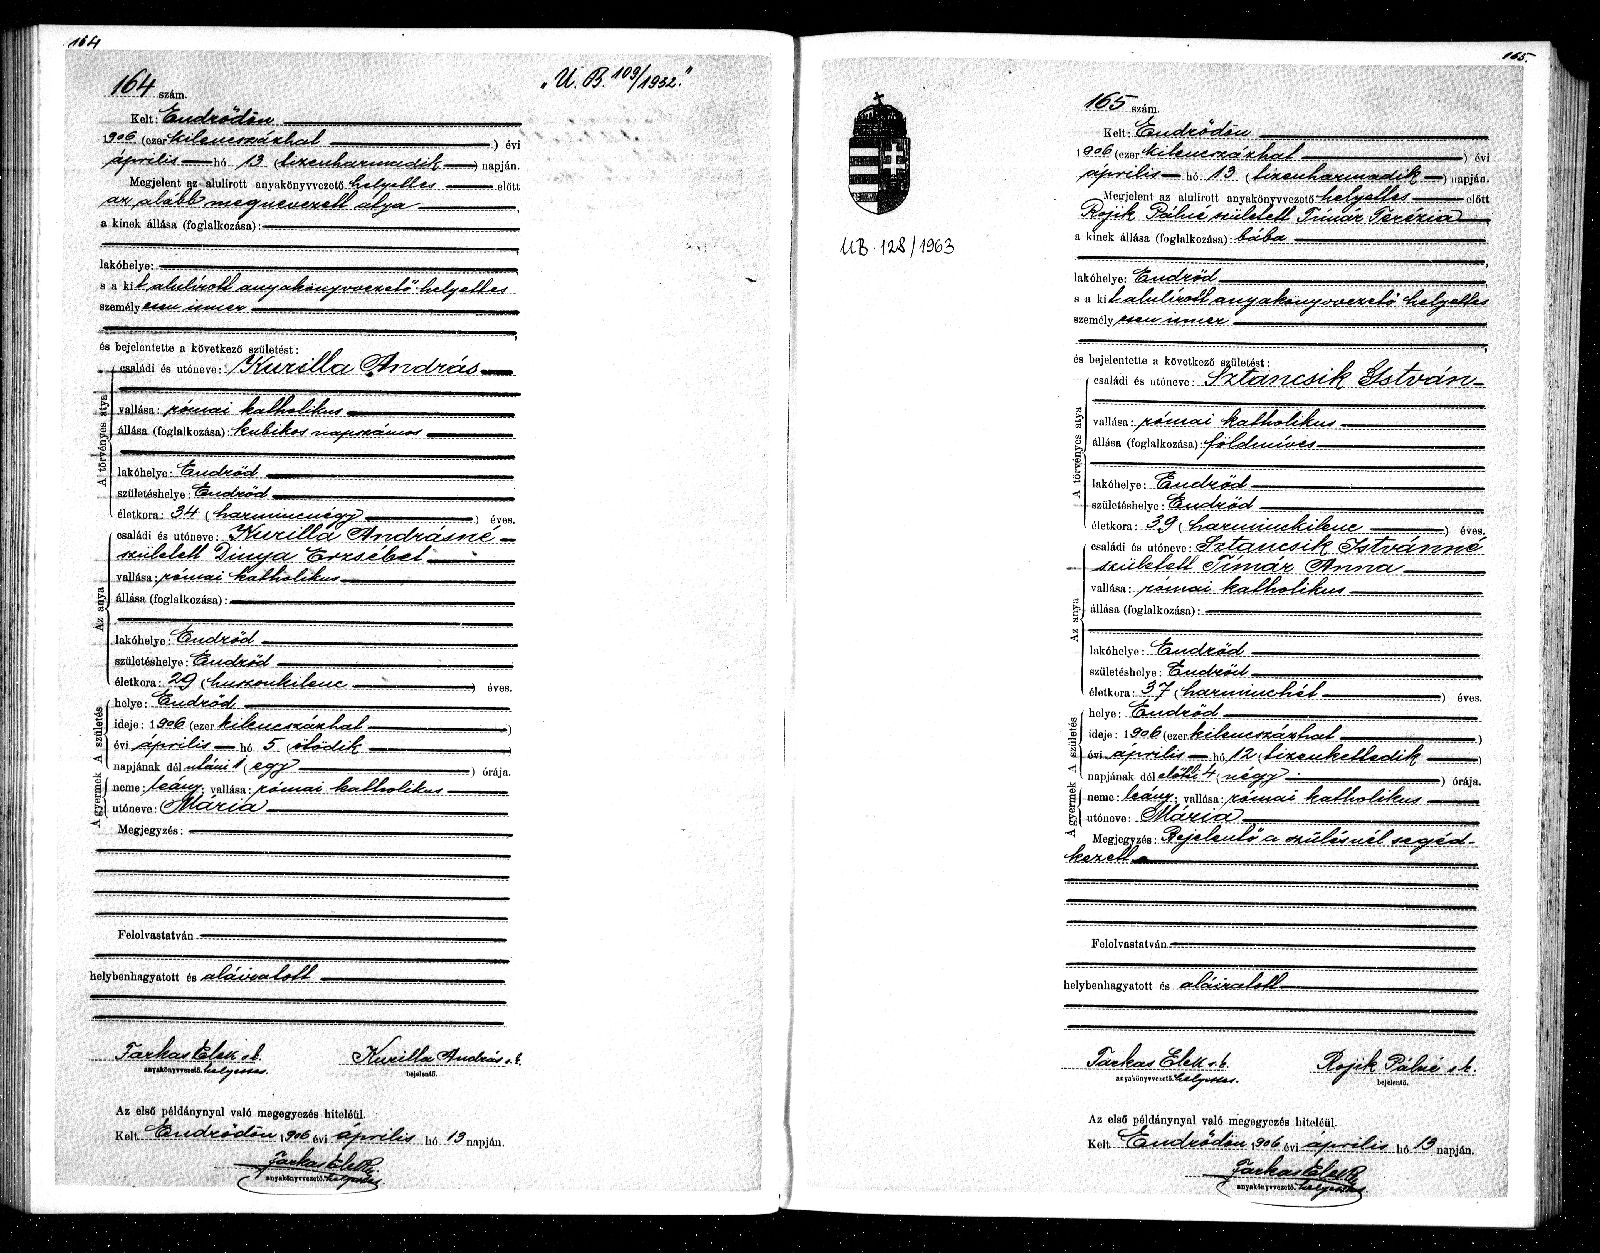 164
164 szám.
„U. B. 109/1952."
Kelt: Endrődön
1906 (ezer kilencszázhat ) évi
április hó 13 (tizenharmadik ) napján.
Megjelent az alulírott anyakönyvvezető helyettes előtt
az alább megnevezett atya
a kinek állása (foglalkozása):
lakóhelye:
s a kit alulírott anyakönyvvezető helyettes
személyesen ismer
és bejelentette a következő születést:
A törvényes atya
családi és utóneve: Kurilla András
vallása: római katholikus
állása (foglalkozása): kubikos napszámos
lakóhelye: Endrőd
születéshelye: Endrőd
életkora: 34 (harmincnégy ) éves.
Az anya
családi és utóneve: Kurilla Andrásné
született Dinya Erzsébet
vallása: római katholikus
állása (foglalkozása):
lakóhelye: Endrőd
születéshelye: Endrőd
életkora: 29 (huszonkilenc ) éves.
A születés
helye: Endrőd
ideje: 1906 (ezer kilencszázhat )
évi április hó 5 (ötödik )
napjának dél utáni 1 (egy ) órája.
A gyermek
neme: leány; vallása: római katholikus
utóneve: Mária
Megjegyzés:
Felolvastatván
helybenhagyatott és aláiratott
Farkas Elek s.k. Kurilla András s.k.
anyakönyvvezető helyettes. bejelentő.
Az első példánynyal való megegyezés hiteléül.
Kelt Endrődön 1906 évi április hó 13 napján.
Farkas Elek
anyakönyvvezető helyettes
165.
165 szám.
UB. 128/1963
Kelt: Endrődön
1906 (ezer kilencszázhat ) évi
április hó 13 (tizenharmadik ) napján.
Megjelent az alulírott anyakönyvvezető helyettes előtt
Rojik Pálné született Tímár Terézia
a kinek állása (foglalkozása): bába
lakóhelye: Endrőd
s a kit alulírott anyakönyvvezető helyettes
személyesen ismer
és bejelentette a következő születést:
A törvényes atya
családi és utóneve: Sztancsik István
vallása: római katholikus
állása (foglalkozása): földmíves
lakóhelye: Endrőd
születéshelye: Endrőd
életkora: 39 (harminckilenc ) éves.
Az anya
családi és utóneve: Sztancsik Istvánné
született Tímár Anna
vallása: római katholikus
állása (foglalkozása):
lakóhelye: Endrőd
születéshelye: Endrőd
életkora: 37 (harminchét ) éves.
A születés
helye: Endrőd
ideje: 1906 (ezer kilencszázhat )
évi április hó 12 (tizenkettedik )
napjának dél előtti 4 (négy ) órája.
A gyermek
neme: leány; vallása: római katholikus
utóneve: Mária
Megjegyzés: Bejelentő a szülésnél segéd-
kezett
Felolvastatván
helybenhagyatott és aláiratott
Farkas Elek s.k. Rojik Pálné s.k.
anyakönyvvezető helyettes. bejelentő.
Az első példánynyal való megegyezés hiteléül.
Kelt Endrődön 1906 évi április hó 13 napján.
Farkas Elek
anyakönyvvezető helyettes